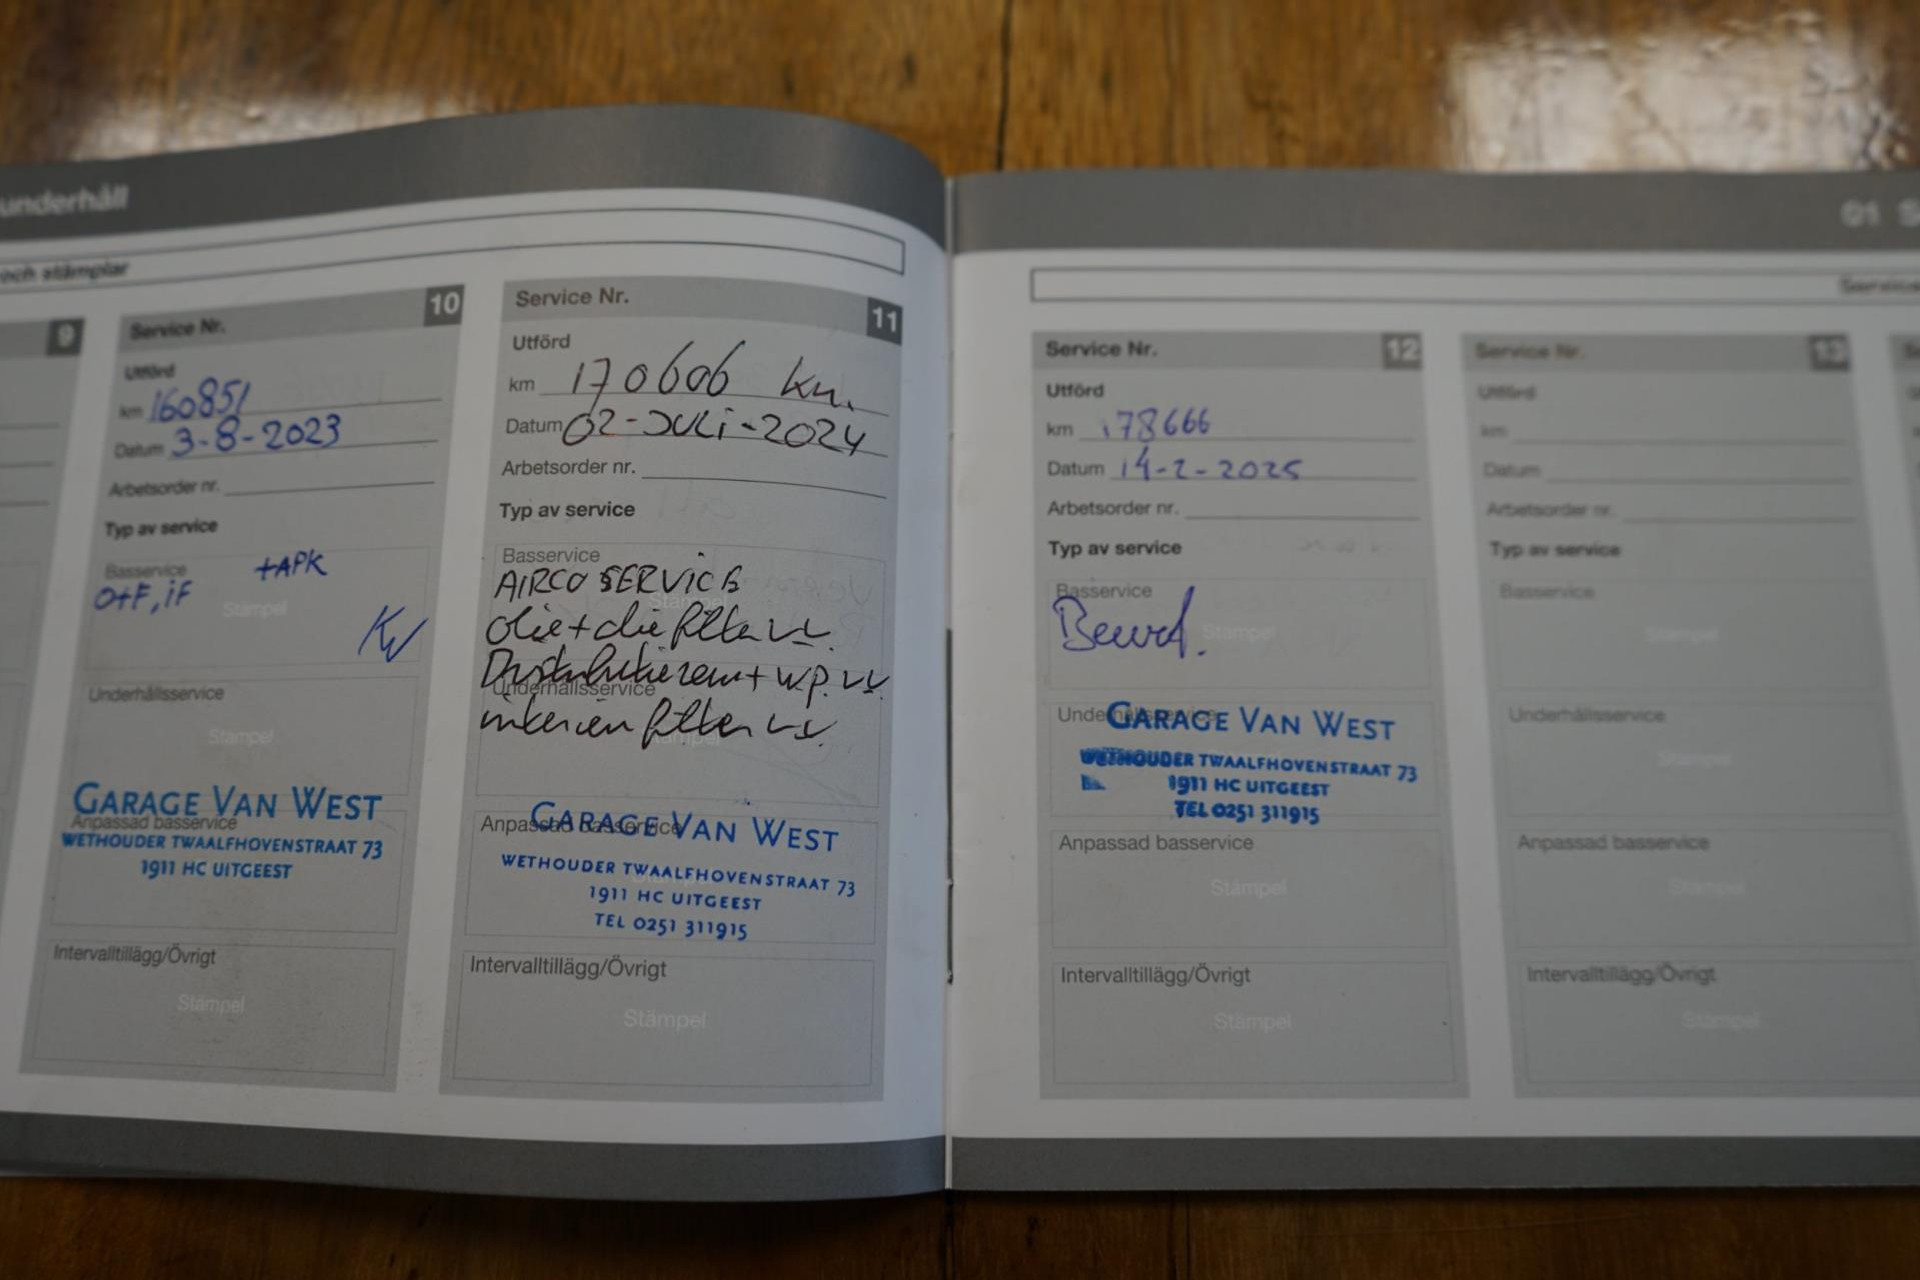 underhåll
och stämplar
9
Service Nr. 10
Utförd
km 160851
Datum 3-8-2023
Arbetsorder nr.
Typ av service
Basservice +APK
O+F, iF
Stämpel
Underhållsservice
Stämpel
GARAGE VAN WEST
Anpassad basservice
WETHOUDER TWAALFHOVENSTRAAT 73
1911 HC UITGEEST
Intervalltillägg/Övrigt
Stämpel
Service Nr. 11
Utförd
km 170606 km.
Datum 02-JULi-2024
Arbetsorder nr.
Typ av service
Basservice
AIRCO SERVICE
Stämpel
olie + olie filter
Distributieriem + w.p.
Underhållsservice
interieur filter
Stämpel
GARAGE VAN WEST
Anpassad basservice
WETHOUDER TWAALFHOVENSTRAAT 73
1911 HC UITGEEST
TEL 0251 311915
Intervalltillägg/Övrigt
Stämpel
01
Service Nr. 12
Utförd
km 178666
Datum 14-2-2025
Arbetsorder nr.
Typ av service
Basservice
Stämpel
Underhållsservice
GARAGE VAN WEST
WETHOUDER TWAALFHOVENSTRAAT 73
1911 HC UITGEEST
TEL 0251 311915
Anpassad basservice
Stämpel
Intervalltillägg/Övrigt
Stämpel
Service Nr. 13
Utförd
km
Datum
Arbetsorder nr.
Typ av service
Basservice
Stämpel
Underhållsservice
Stämpel
Anpassad basservice
Stämpel
Intervalltillägg/Övrigt
Stämpel